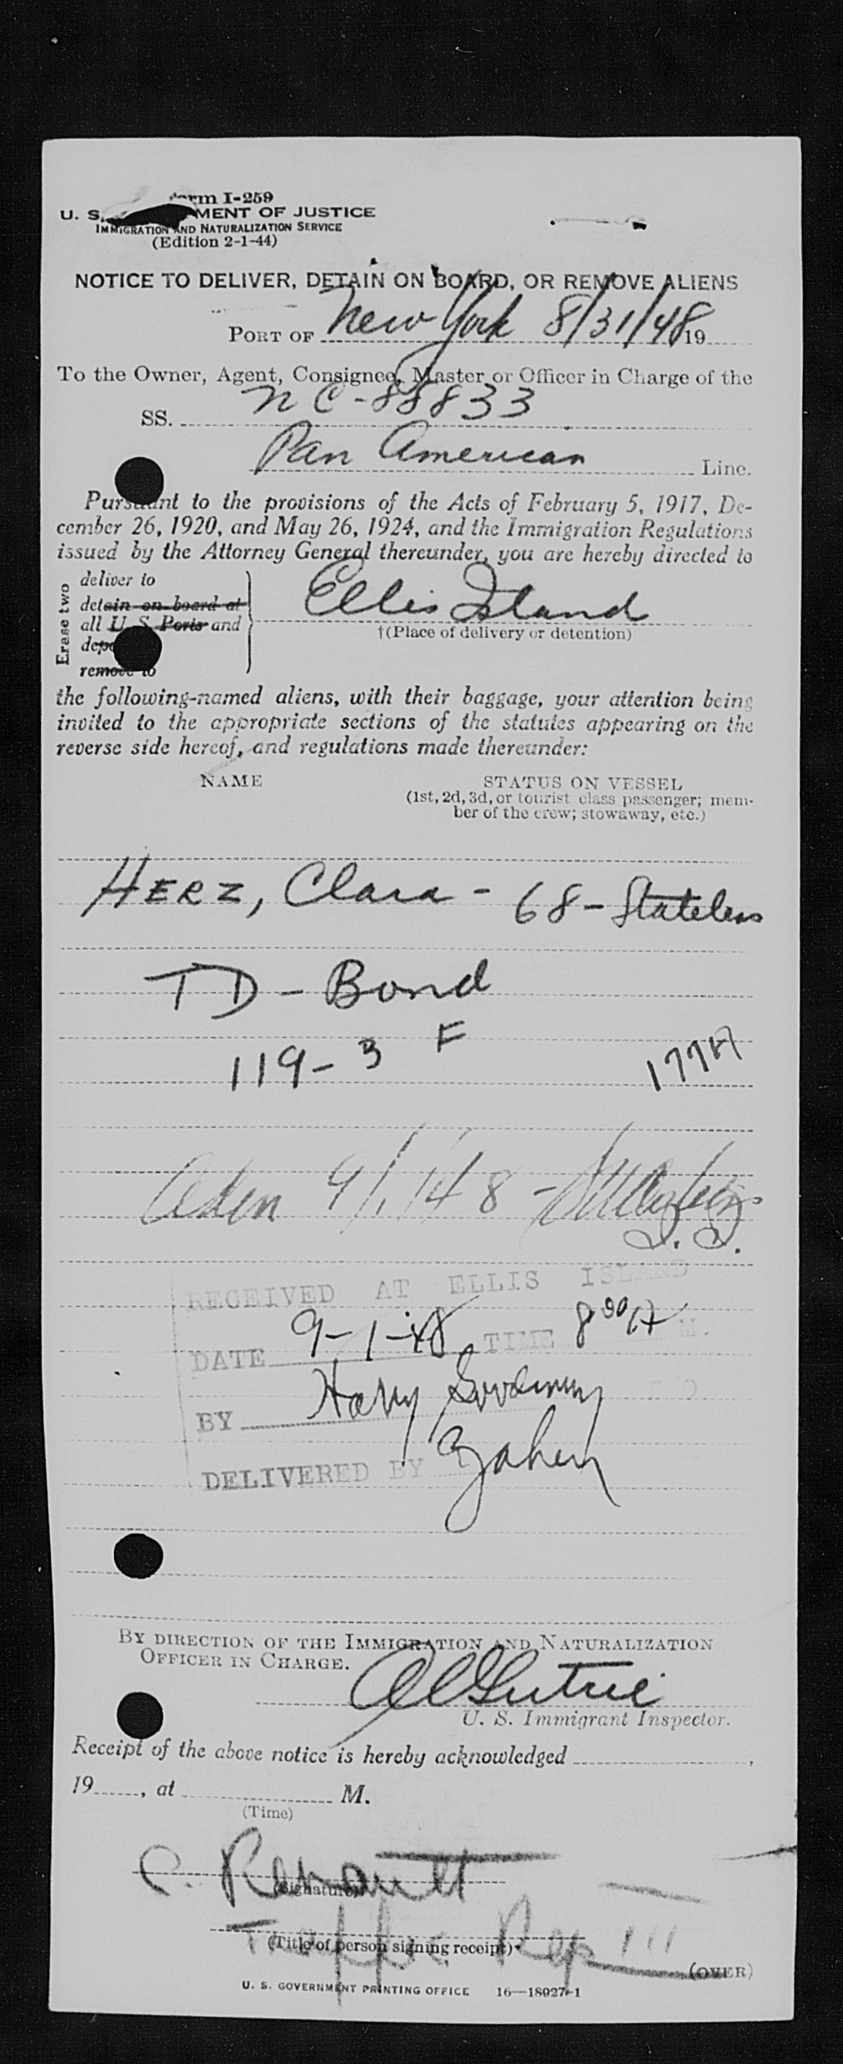 Form I-259
U. S. DEPARTMENT OF JUSTICE
IMMIGRATION AND NATURALIZATION SERVICE
(Edition 2-1-44)
NOTICE TO DELIVER, DETAIN ON BOARD, OR REMOVE ALIENS
PORT OF New York 8/31/48 19
To the Owner, Agent, Consignee, Master or Officer in Charge of the
SS. NC-88833
Pan American Line.
Pursuant to the provisions of the Acts of February 5, 1917, De-
cember 26, 1920, and May 26, 1924, and the Immigration Regulations
issued by the Attorney General thereunder, you are hereby directed to
Erase two
deliver to
detain on board at
all U. S. Ports and
remove to
Ellis Island
†(Place of delivery or detention)
the following-named aliens, with their baggage, your attention being
invited to the appropriate sections of the statutes appearing on the
reverse side hereof, and regulations made thereunder:
NAME STATUS ON VESSEL
(1st, 2d, 3d, or tourist class passenger; mem-
ber of the crew; stowaway, etc.)
HERZ, Clara - 68 - Stateless
TD - Bond
119-3 F
9/1/48 -
RECEIVED AT ELLIS ISLAND
DATE 9-1-48 TIME 8 30 A M.
BY Harry
DELIVERED BY
BY DIRECTION OF THE IMMIGRATION AND NATURALIZATION
OFFICER IN CHARGE.
U. S. Immigrant Inspector.
Receipt of the above notice is hereby acknowledged ,
19 , at M.
(Time)
(Signature)
Traffic Rep III
(Title of person signing receipt)
(OVER)
U. S. GOVERNMENT PRINTING OFFICE 16—18027-1